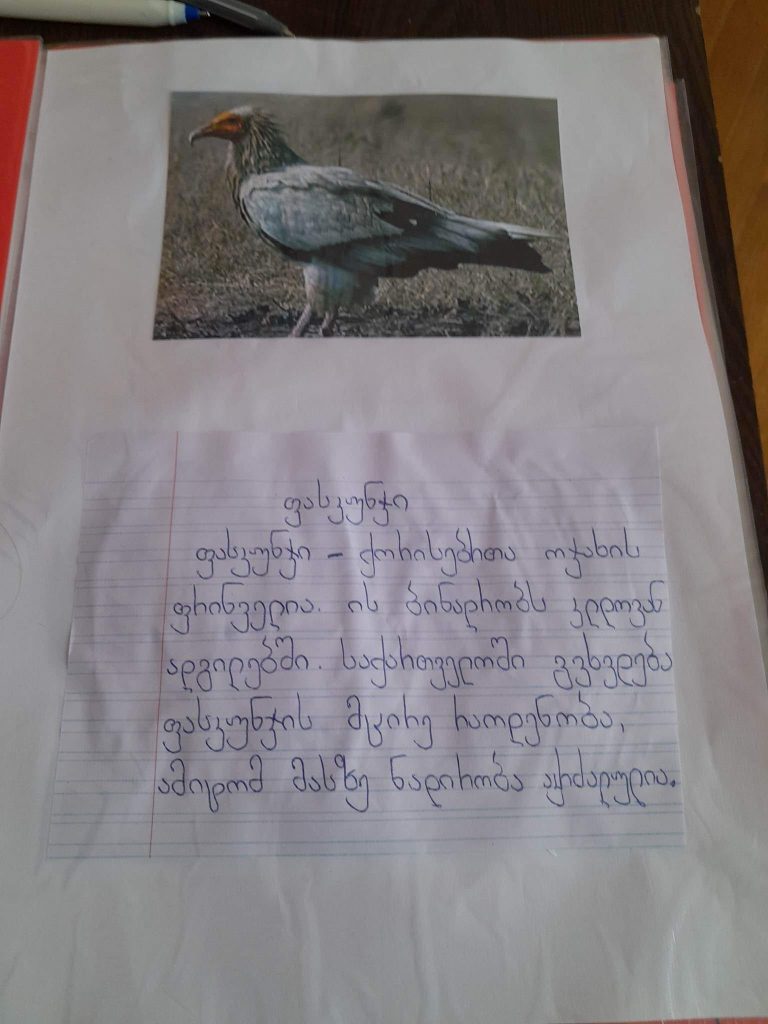 ფასკუნჯი
ფასკუნჯი – ქორისებრთა ოჯახის
ფრინველია. ის ბინადრობს კლდოვან
ადგილებში. საქართველოში გვხვდება
ფასკუნჯის მცირე რაოდენობა,
ამიტომ მასზე ნადირობა აკრძალულია.